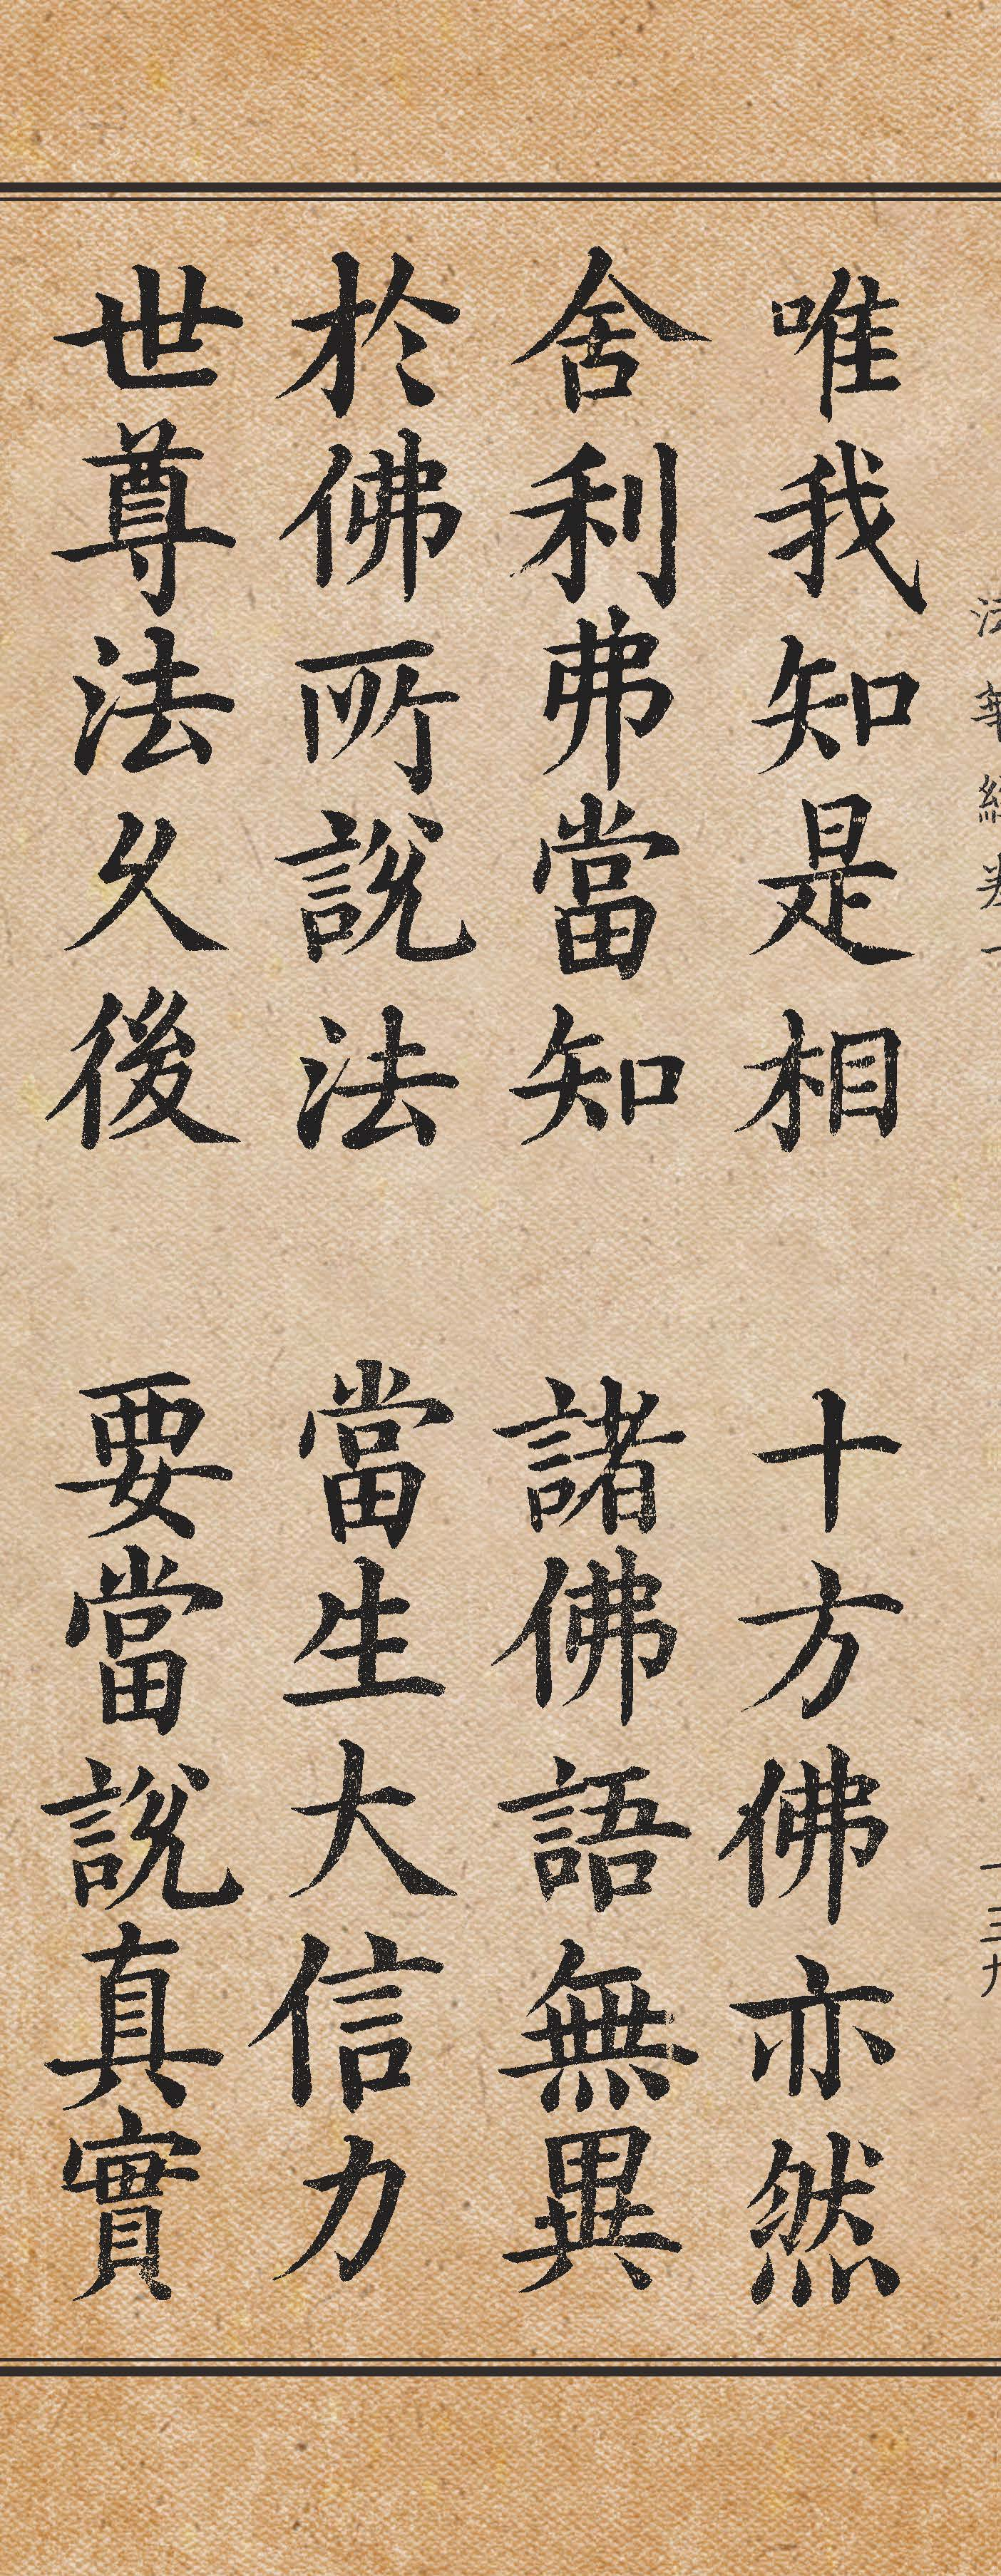 法華經卷一
一三九
唯我知是相 十方佛亦然
舍利弗當知 諸佛語無異
於佛所說法 當生大信力
世尊法久後 要當說真實